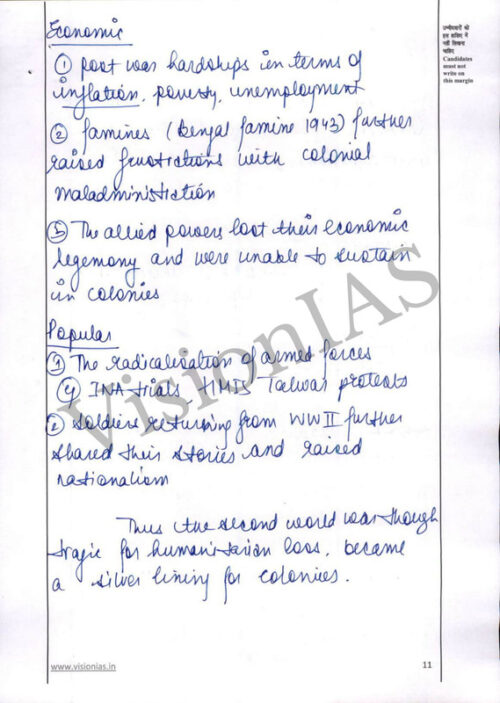 Economic
① post war hardships in terms of
inflation, poverty, unemployment
② famines (Bengal famine 1943) further
raised frustrations with colonial
maladministration
③ The allied powers lost their economic
hegemony and were unable to sustain
in colonies
Popular
① The radicalisation of armed forces
eg INA trials, HMIS Talwar protests
② Soldiers returning from WW II further
shared their stories and raised
nationalism
Thus the second world war though
tragic for humanitarian loss, became
a silver lining for colonies.
उम्मीदवारों को
इस हाशिए में
नहीं लिखना
चाहिए
Candidates
must not
write on
this margin
VisionIAS
www.visionias.in
11